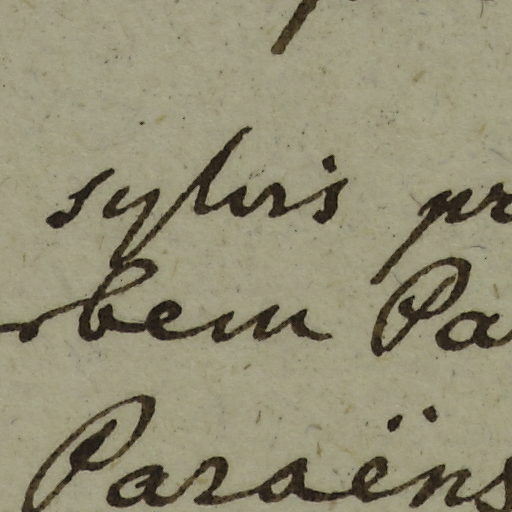 sylvis pr
rbem Pa
Paraëns